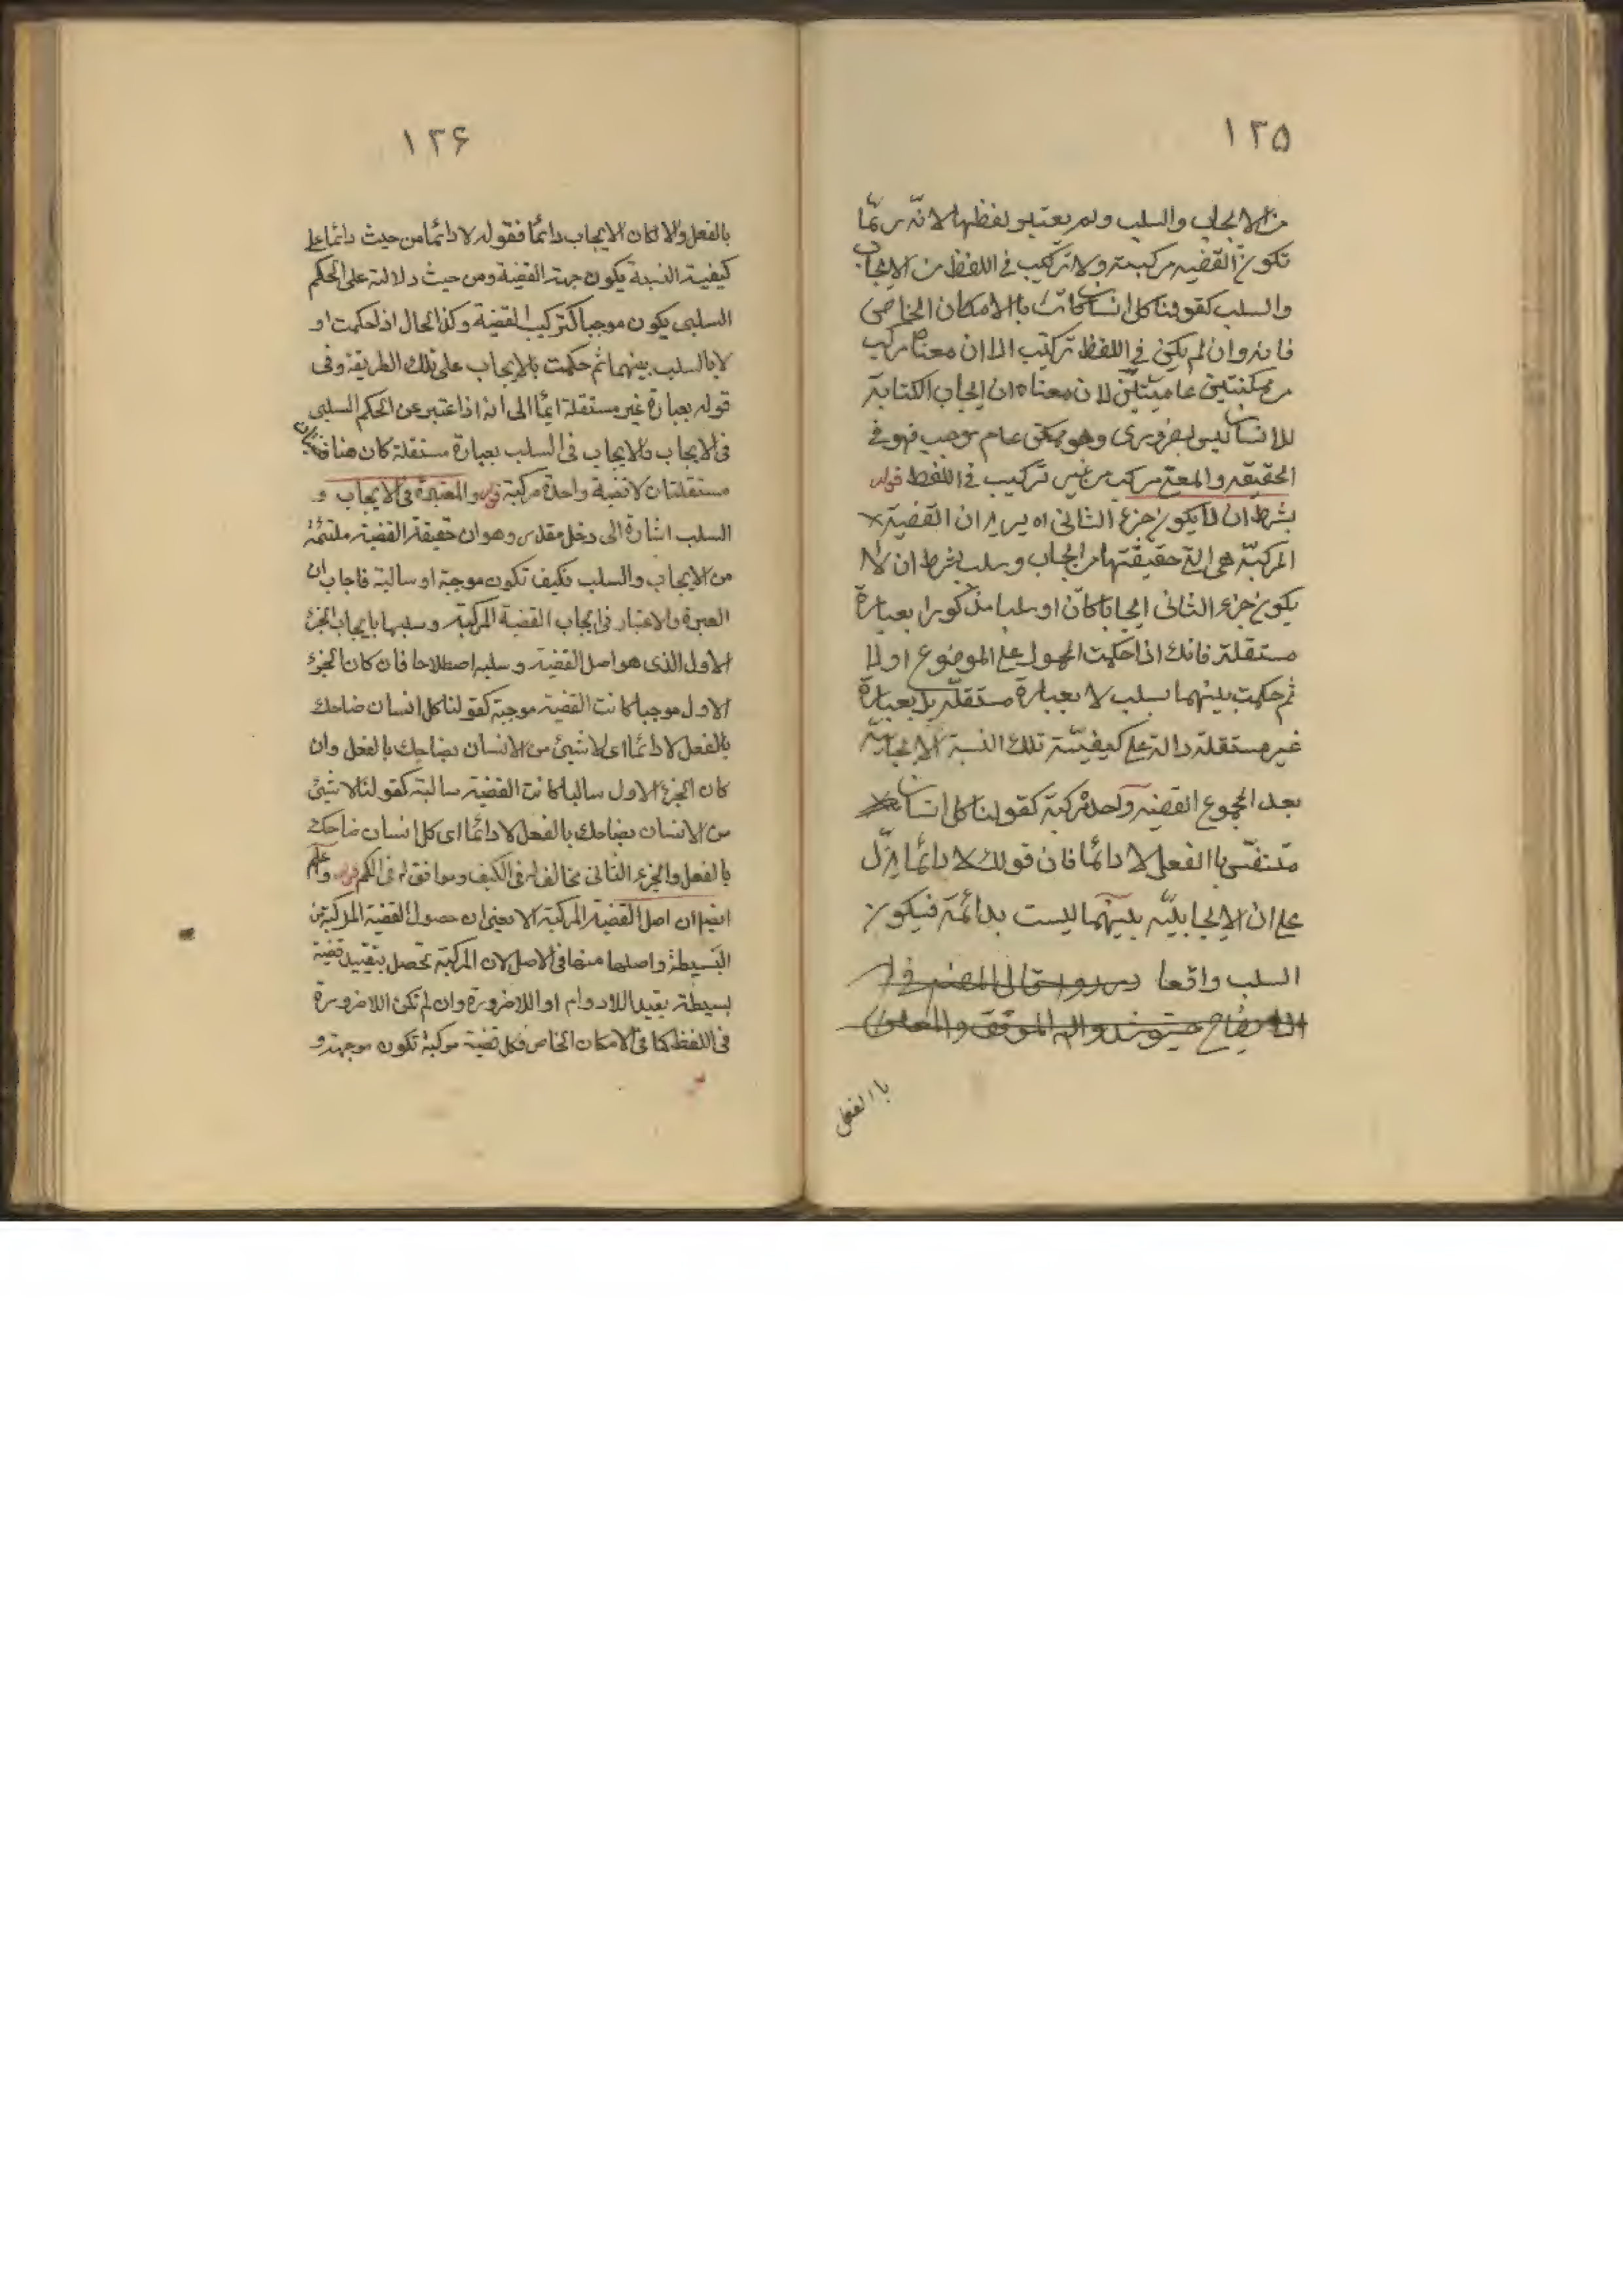 ١٢٥
من الايجاب والسلب ولم يعتبر لفظها لانّه ربّما
تكون القضيه مركبة ولا تركيب في اللفظ من الايجاب
والسلب كقولنا كل انسان كاتب باالامكان الخاص
فانه وان لم يكن في اللفظ تركيب الا ان معناه مركب
من ممكنتين عاميتين لان معناه ان ايجاب الكتابة
للانسان ليس بضروري وهو ممكن عام موجب فهو في
الحقيقه والمعنى مركب من غير تركيب في اللفظ قوله
بشرط ان لا يكون جزء الثاني اه يريد ان القضية
المركبّة هي التي حقيقتها من ايجاب وسلب بشرط ان لا
يكون جزء الثاني ايجابا كان او سلبا مذكورا بعبارة
مستقلة فانك اذا حكمت المحمول على الموضوع اولا
ثم حكمت بينهما بسلب لا بعبارة مستقلّة بل بعبارة
غير مستقلة دالة على كيفيّة تلك النسبة الايجابيّة
بعد المجموع القضيه واحدة مركبة كقولنا كل انسان
متنفّس باالفعل لا دائما فان قولك لا دائما يدّل
على ان الايجابيّه بينهما ليست بدائمة فيكون
السلب واقعا
باالفعل
١٢۶
بالفعل والا لكان الايجاب دائما فقوله لا دائما من حيث دائما على
كيفية النسبة يكون جهة القضية ومن حيث دلالته على الحكم
السلبي يكون موجبا لتركيب القضية وكذا الحال اذا حكمت او
لا بالسلب بينهما ثم حكمت بالايجاب على تلك الطريقة وفى
قوله بعبارة غير مستقلة ايماً الى انه اذا عتبر عن الحكم السلبي
فى الايجاب والايجاب فى السلب بعبارة مستقلة كان هنا قضيتان
مستقلتان لا قضية واحدة مركبة قوله والمعتبرة فى الايجاب و
السلب اشارة الى دخل مقدر وهو ان حقيقة القضية ملتئمة
من الايجاب والسلب فكيف تكون موجبة او سالبة فاجاب ان
العبرة والاعتبار فى ايجاب القضية المركبة وسلبها بايجاب الجزء
الاول الذى هو اصل القضية وسلبه اصطلاحا فان كان الجزء
الاول موجبا كانت القضية موجبة كقولنا كل انسان ضاحك
بالفعل لا دائما اى لا شيئ من الانسان بضاحك بالفعل وان
كان الجزء الاول سالبا كانت القضية سالبة كقولنا لا شيئ
من الانسان بضاحك بالفعل لا دائما اى كل انسان ضاحك
بالفعل والجزء الثانى مخالف له فى الكيف وموافق له فى الكم قوله واعلم
ايضا ان اصل القضية المركبة الا يعنى ان حصول القضية المركبة من
البسيطة واصلها منها فى الاصل لان المركبة تحصل بتقييد قضية
بسيطة بقيد اللادوام او اللاضرورة وان لم تكن اللاضرورة
فى اللفظ كما فى الامكان الخاص فكل قضية مركبة تكون موجهة و